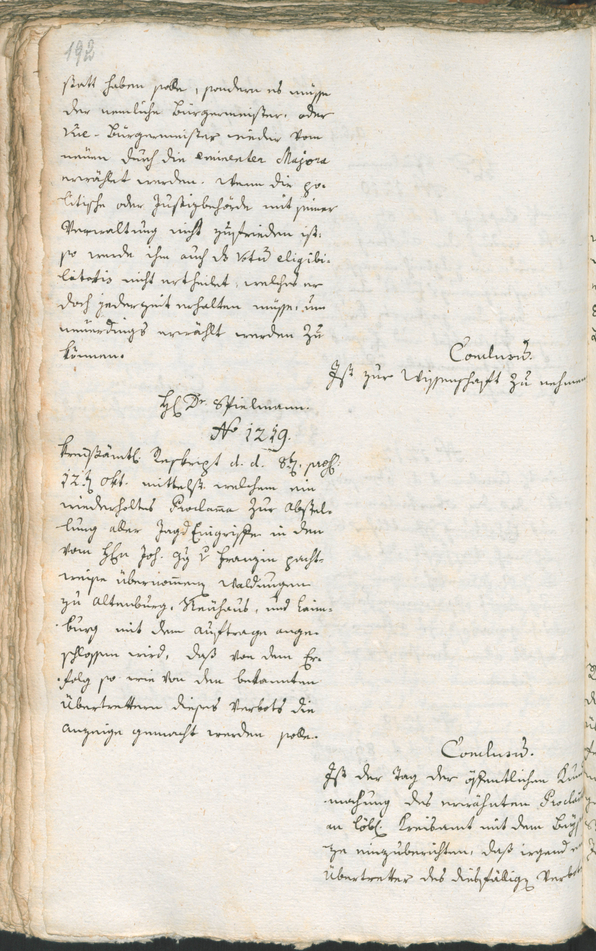 192
statt haben solle, sondern es müsse
der nemliche Bürgermeister, oder
Vice-Bürgermeister wieder vom
neuen durch die eminenter Majora
erwählt werden. Wenn die po-
litische oder Justizbehörde mit seiner
Verwaltung nicht zufrieden ist:
so werde ihm auch das eligibi-
litatis nicht ertheilet, welches er
doch jederzeit erhalten müsse, um
neuerdings erwählt werden zu
können.
Conclusū.
Ist zur Wissenschaft zu nehmen
H Dr. Spielmann.
No 1219.
Kreisämtl. Reskript d. d. 8t. praes.
12t. Okt. mittelst welchem ein
wiederholtes Proclama zur Abstel-
lung aller Jagd Eingriffe in den
vom Hrn Joh. v Franzin pacht-
weise übernomenen Waldungen
zu Altenburg, Neuhaus, und Laim-
burg mit dem Auftrage ange-
schlossen wird, daß von dem Er-
folg so wie von den bekannten
Übertrettern dieses Verbots die
Anzeige gemacht werden solle.
Conclusū.
Ist der Tag der öffentlichen Kund
machung des erwähnten Procla
an löbl. Kreisamt mit dem
ze einzuberichten, daß irgend
Übertretter des dießfällign Verbots